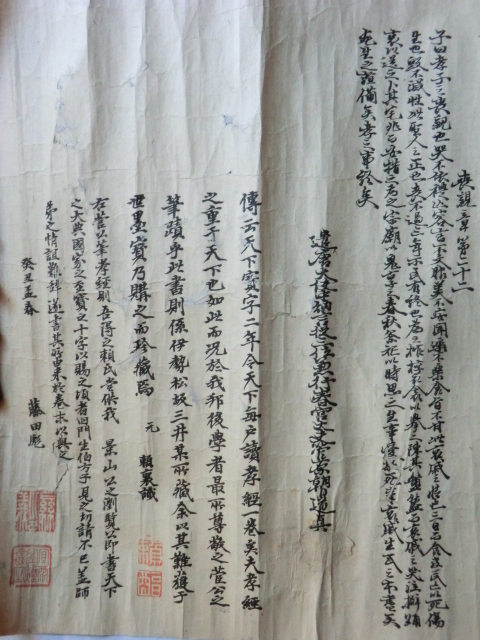 喪親章第二十二
子曰孝子之喪親也哭不依禮無容言不文服美不安聞樂不樂食旨不甘此哀戚之情也三日而食教民無以死傷
生也毀不滅性此聖人之正也喪不過三年示民有終也為之棺椁衣衾以舉之陳其簠簋而哀戚之哭泣擗踊
哀以送之卜其宅兆而安措之為之宗廟以鬼享之春秋祭祀以時思之生事愛敬死事哀戚生民之本盡矣
死生之誼備矣孝子事終矣
遣唐大使中納言從三位兼行春宮大夫菅原朝臣道真
傳云天下寳字二年令天下每戶讀孝經一卷矣夫孝經
之重于天下也如此而況於我邦後學者最所尊敬之菅公之
筆蹟乎此書則係伊勢松坂三井某所藏余以其難獲于
世墨寳乃購之而珍藏焉
元 賴襄識
右菅公筆孝經則吾得之賴氏嘗供我 景山公之瀏覽公即書天下
之大典國家之至寳之十字以賜之頃者同門生伯方子見之切請不已盖師
弟之情誼難辭遂書其所由來於卷末以與之
癸丑孟春
藤田彪